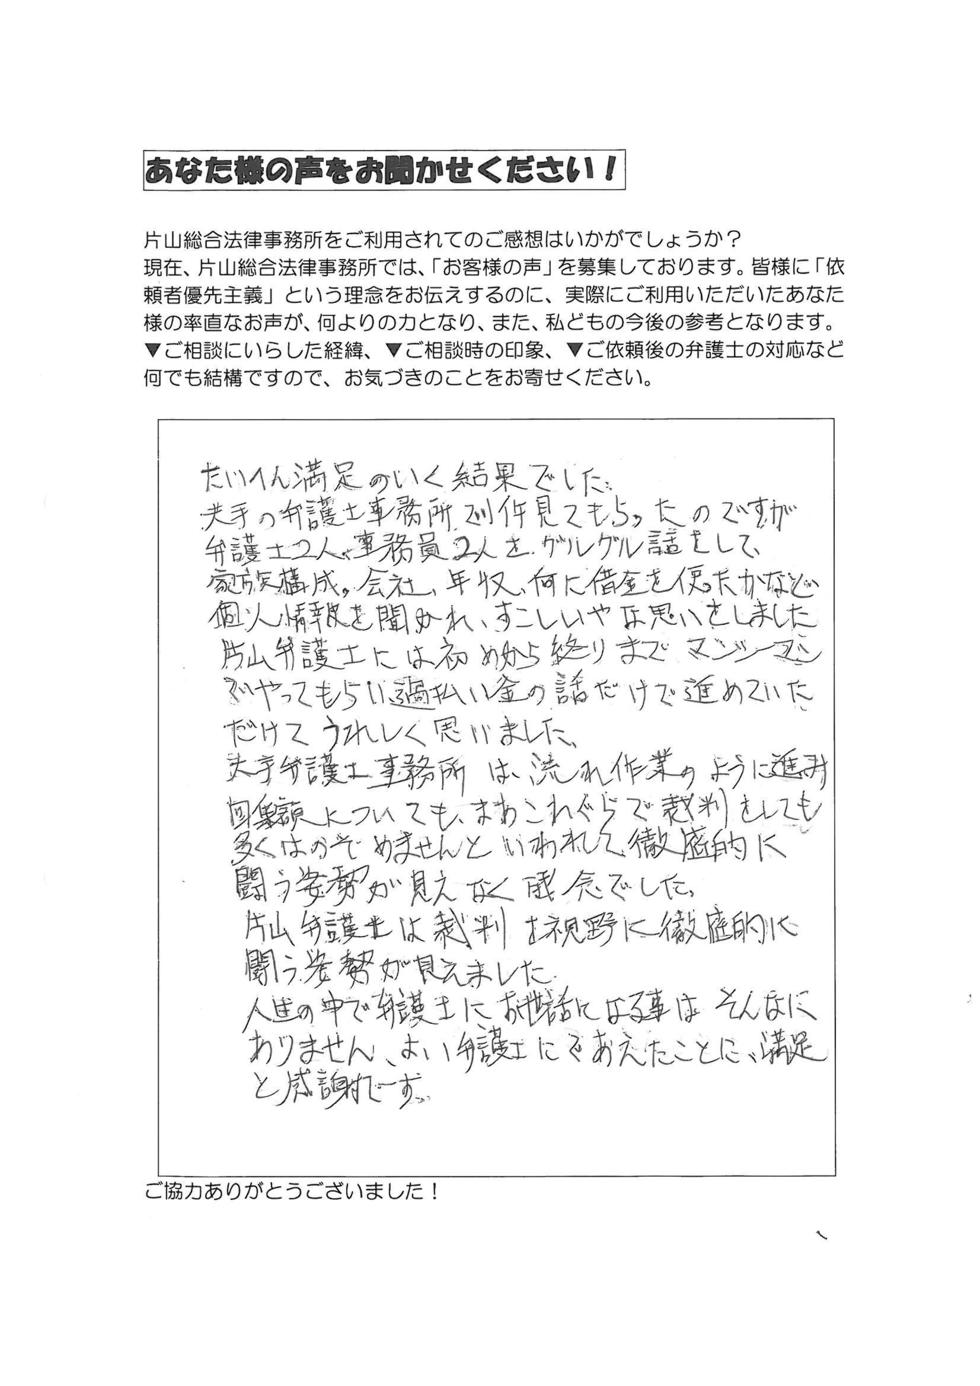 あなた様の声をお聞かせください！
片山総合法律事務所をご利用されてのご感想はいかがでしょうか？
現在、片山総合法律事務所では、「お客様の声」を募集しております。皆様に「依
頼者優先主義」という理念をお伝えするのに、実際にご利用いただいたあなた
様の率直なお声が、何よりの力となり、また、私どもの今後の参考となります。
▼ご相談にいらした経緯、▼ご相談時の印象、▼ご依頼後の弁護士の対応など
何でも結構ですので、お気づきのことをお寄せください。
たいへん満足のいく結果でした。
大手の弁護士事務所で1件見てもらったのですが
弁護士2人、事務員2人を、グルグル話をして、
家族構成。会社、年収、何に借金を使ったかなど
個人情報を聞かれ、すこしいやな思いをしました
片山弁護士には初めから終りまでマンツーマン
でやってもらい過払い金の話だけで進めていた
だけてうれしく思いました。
大手弁護士事務所は、流れ作業のように進み
回収額についても、まあこれぐらで裁判をしても
多くはのぞめませんといわれて、徹底的に
闘う姿勢が見えなく残念でした。
片山弁護士は裁判も視野に徹底的に
闘う姿勢が見えました。
人生の中で弁護士にお世話になる事はそんなに
ありません、よい弁護士にであえたことに、満足
と感謝です。
ご協力ありがとうございました！